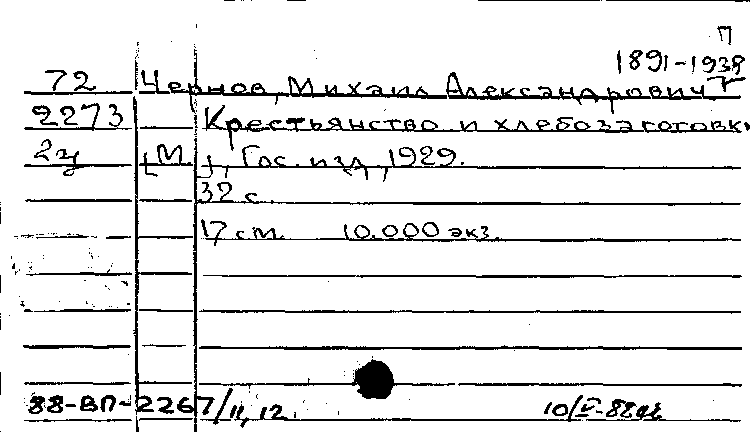 П
1891-1938
72 Чернов, Михаил Александрович
2273 Крестьянство и хлебозаготовк
[М], Гос. изд, 1929.
32 с.
17 см. 10.000 экз.
88-ВП-2267/11, 12.